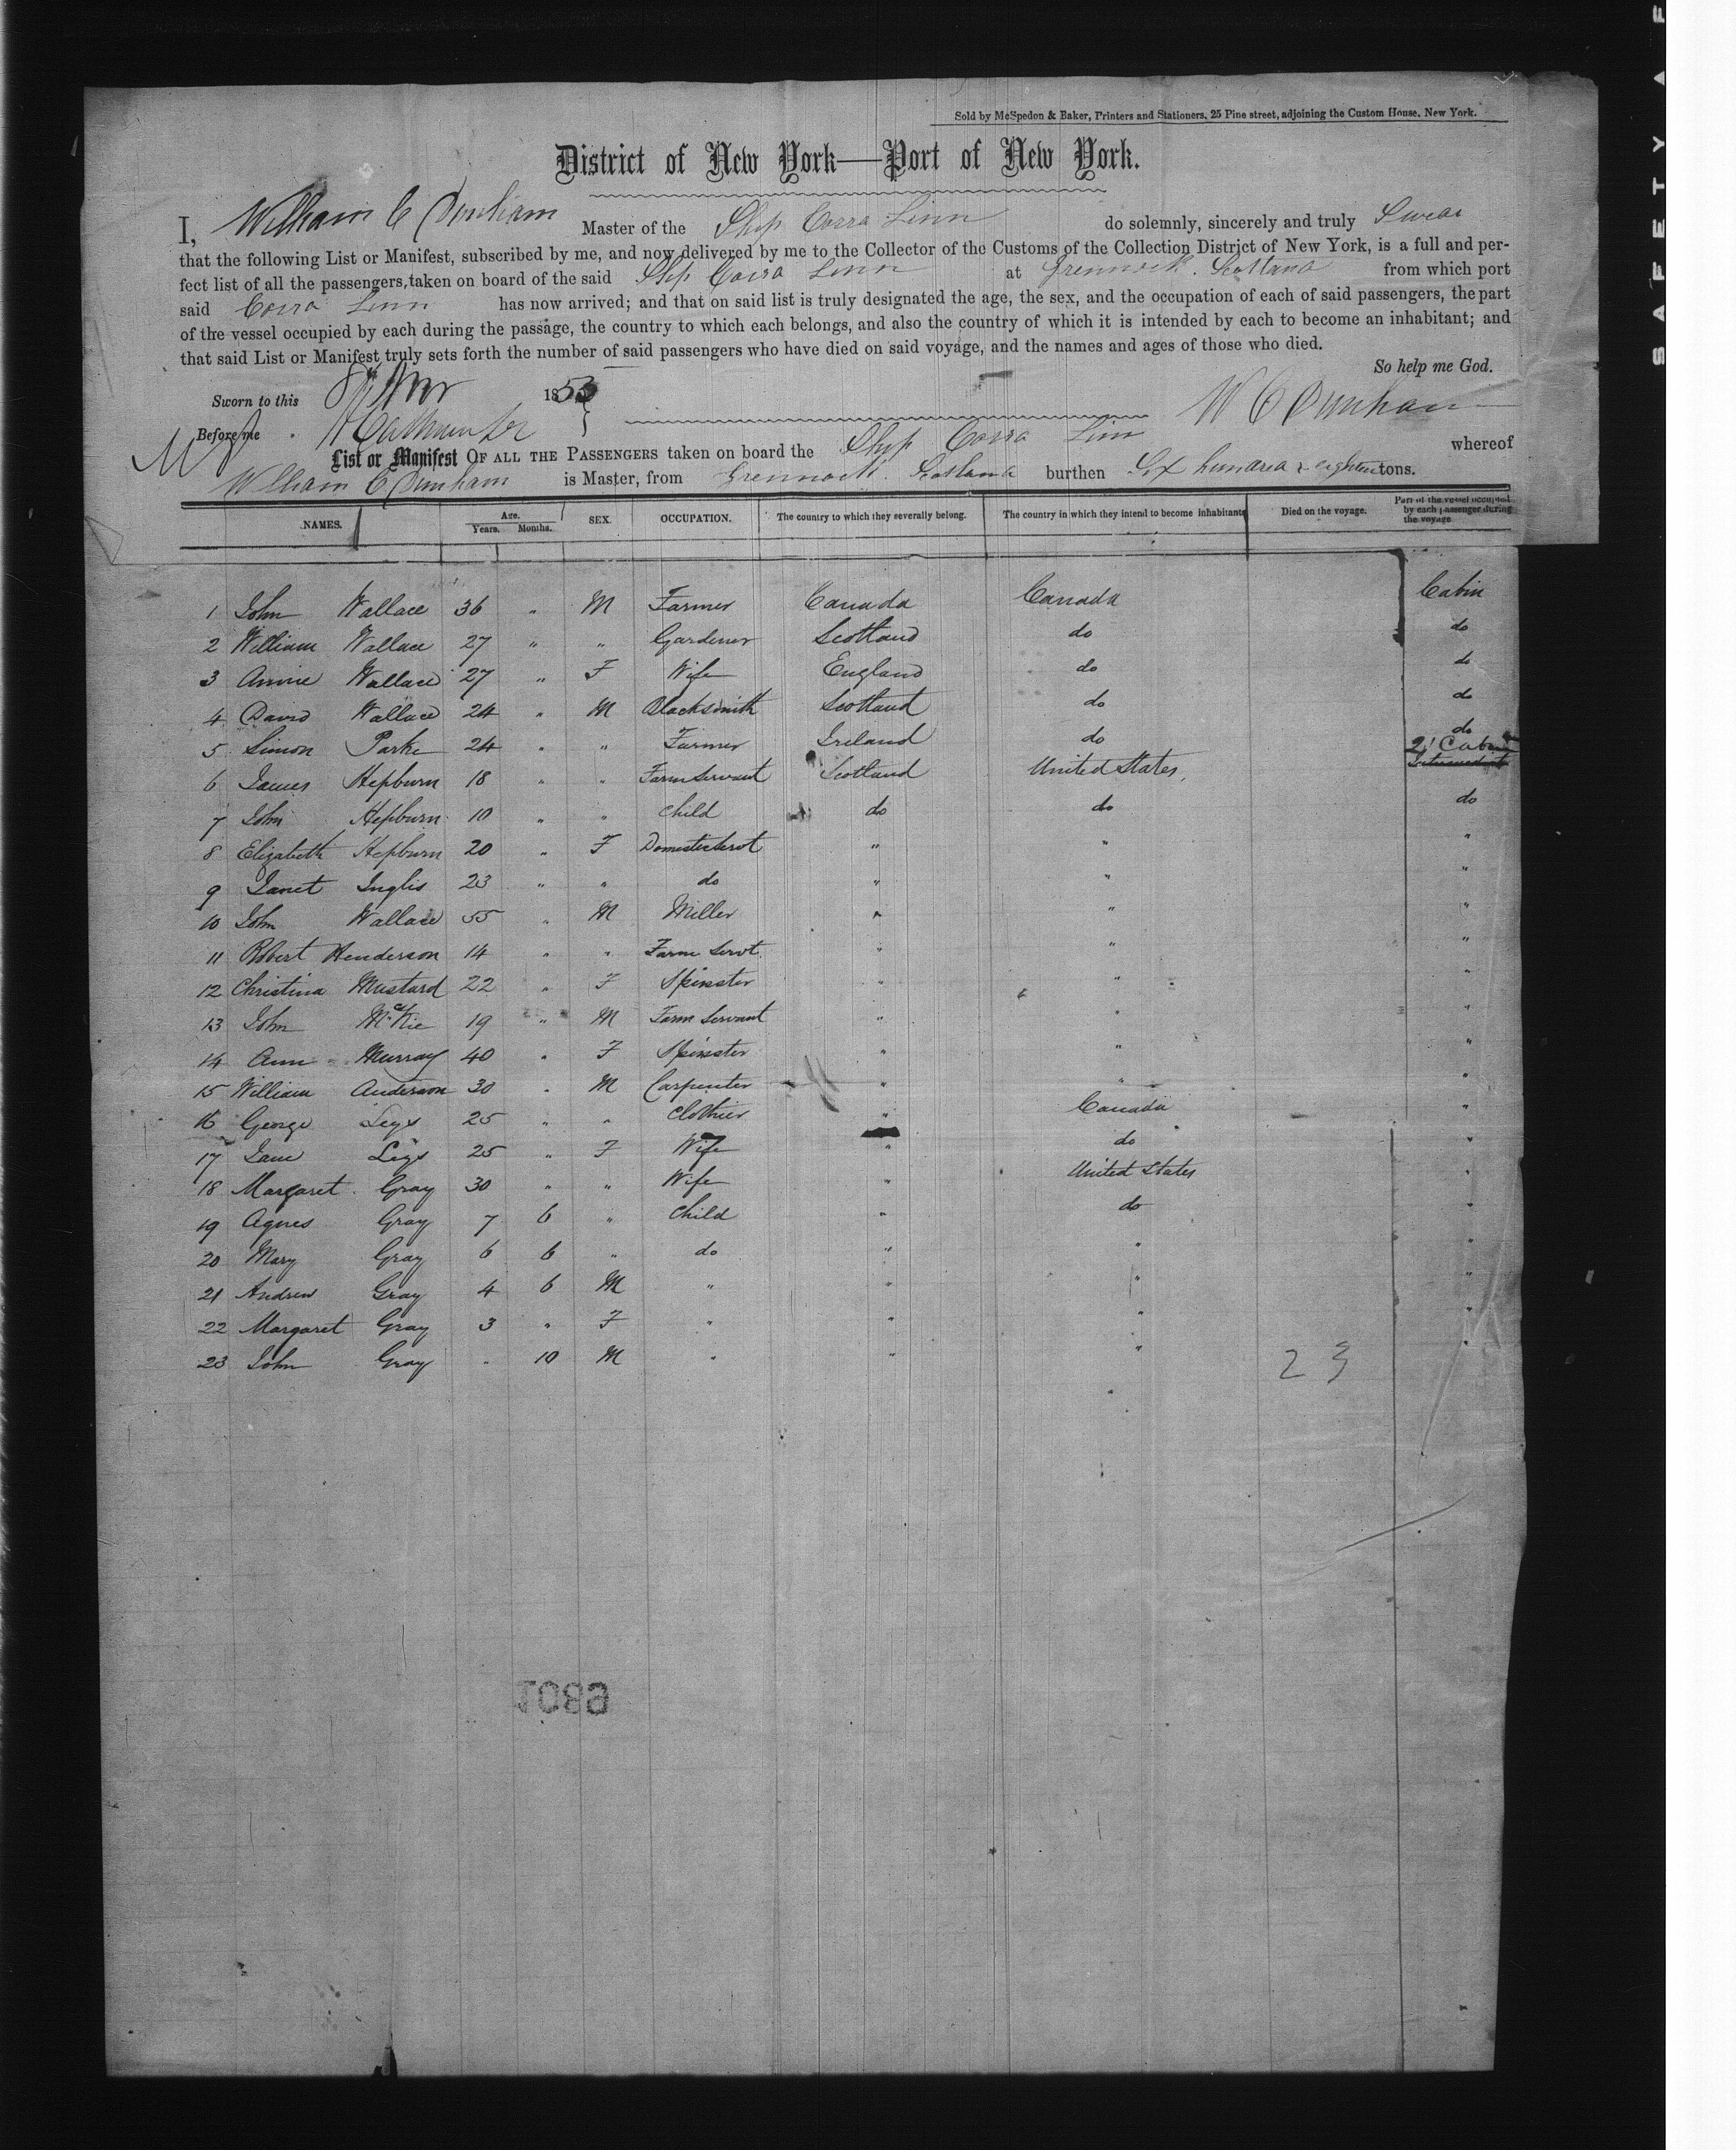 SAFETY
Sold by McSpedon & Baker, Printers and Stationers, 25 Pine street, adjoining the Custom House, New York.
District of New York—Port of New York.
I, William C Dunham Master of the Ship Corra Linn do solemnly, sincerely and truly Swear
that the following List or Manifest, subscribed by me, and now delivered by me to the Collector of the Customs of the Collection District of New York, is a full and per-
fect list of all the passengers, taken on board of the said Ship Corra Linn at Greenock. Scotland from which port
said Corra Linn has now arrived; and that on said list is truly designated the age, the sex, and the occupation of each of said passengers, the part
of the vessel occupied by each during the passage, the country to which each belongs, and also the country of which it is intended by each to become an inhabitant; and
that said List or Manifest truly sets forth the number of said passengers who have died on said voyage, and the names and ages of those who died.
So help me God.
Sworn to this 8 Nov 1853
W C Dunham
Before me
List or Manifest OF ALL THE PASSENGERS taken on board the Ship Corra Linn whereof
William C Dunham is Master, from Greenock. Scotland burthen Six hundred & eighteen tons.
NAMES. Age. Years. Months. SEX. OCCUPATION. The country to which they severally belong. The country in which they intend to become inhabitants Died on the voyage. Part of the vessel occupied by each passenger during the voyage
1 John Wallace 36 " M Farmer Canada Canada Cabin
2 William Wallace 27 " " Gardener Scotland do do
3 Annie Wallace 27 " F Wife England do do
4 David Wallace 24 " M Blacksmith Scotland do do
5 Simon Parke 24 " " Farmer Ireland do do
6 James Hepburn 18 " " Farm Servant Scotland United States, 2d Cabin
7 John Hepburn 10 " " Child do do do
8 Elizabeth Hepburn 20 " F Domestic Servt " " "
9 Janet Inglis 23 " " do " " "
10 John Wallace 55 " M Miller " " "
11 Robert Henderson 14 " " Farm Servt. " " "
12 Christina Mustard 22 " F Spinster " " "
13 John McKie 19 " M Farm Servant " " "
14 Ann Murray 40 " F Spinster " " "
15 William Anderson 30 " M Carpenter " " "
16 George Legs 25 " " Clothier " Canada "
17 Jane Legs 25 " F Wife " do "
18 Margaret Gray 30 " " Wife " United States "
19 Agnes Gray 7 6 " Child " do "
20 Mary Gray 6 6 " do " " "
21 Andrew Gray 4 6 M " " " "
22 Margaret Gray 3 " F " " " "
23 John Gray " 10 M " " " "
23